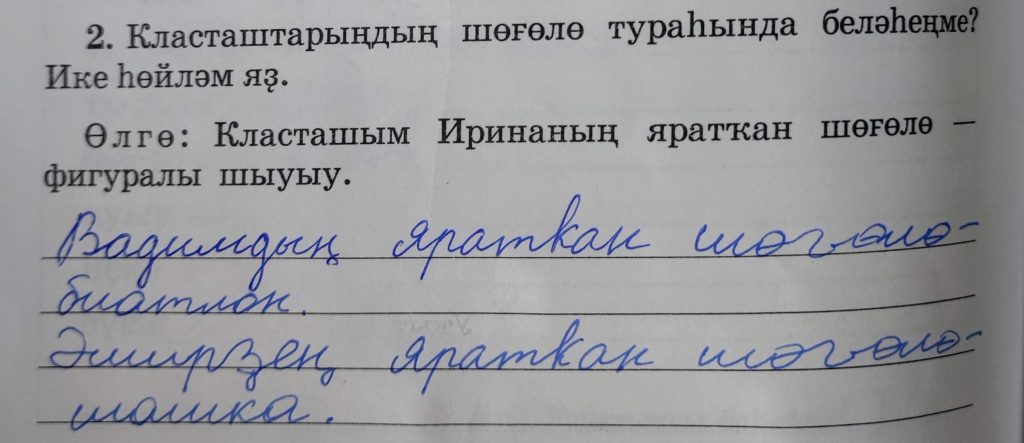 2. Класташтарыңдың шөғөлө тураһында беләһеңме?
Ике һөйләм яҙ.
Өлгө: Класташым Иринаның яратҡан шөғөлө —
фигуралы шыуыу.
Вадимдың яратҡан шөгөлө-
биатлон.
Әмирҙең яратҡан шөгөлө-
шашка.